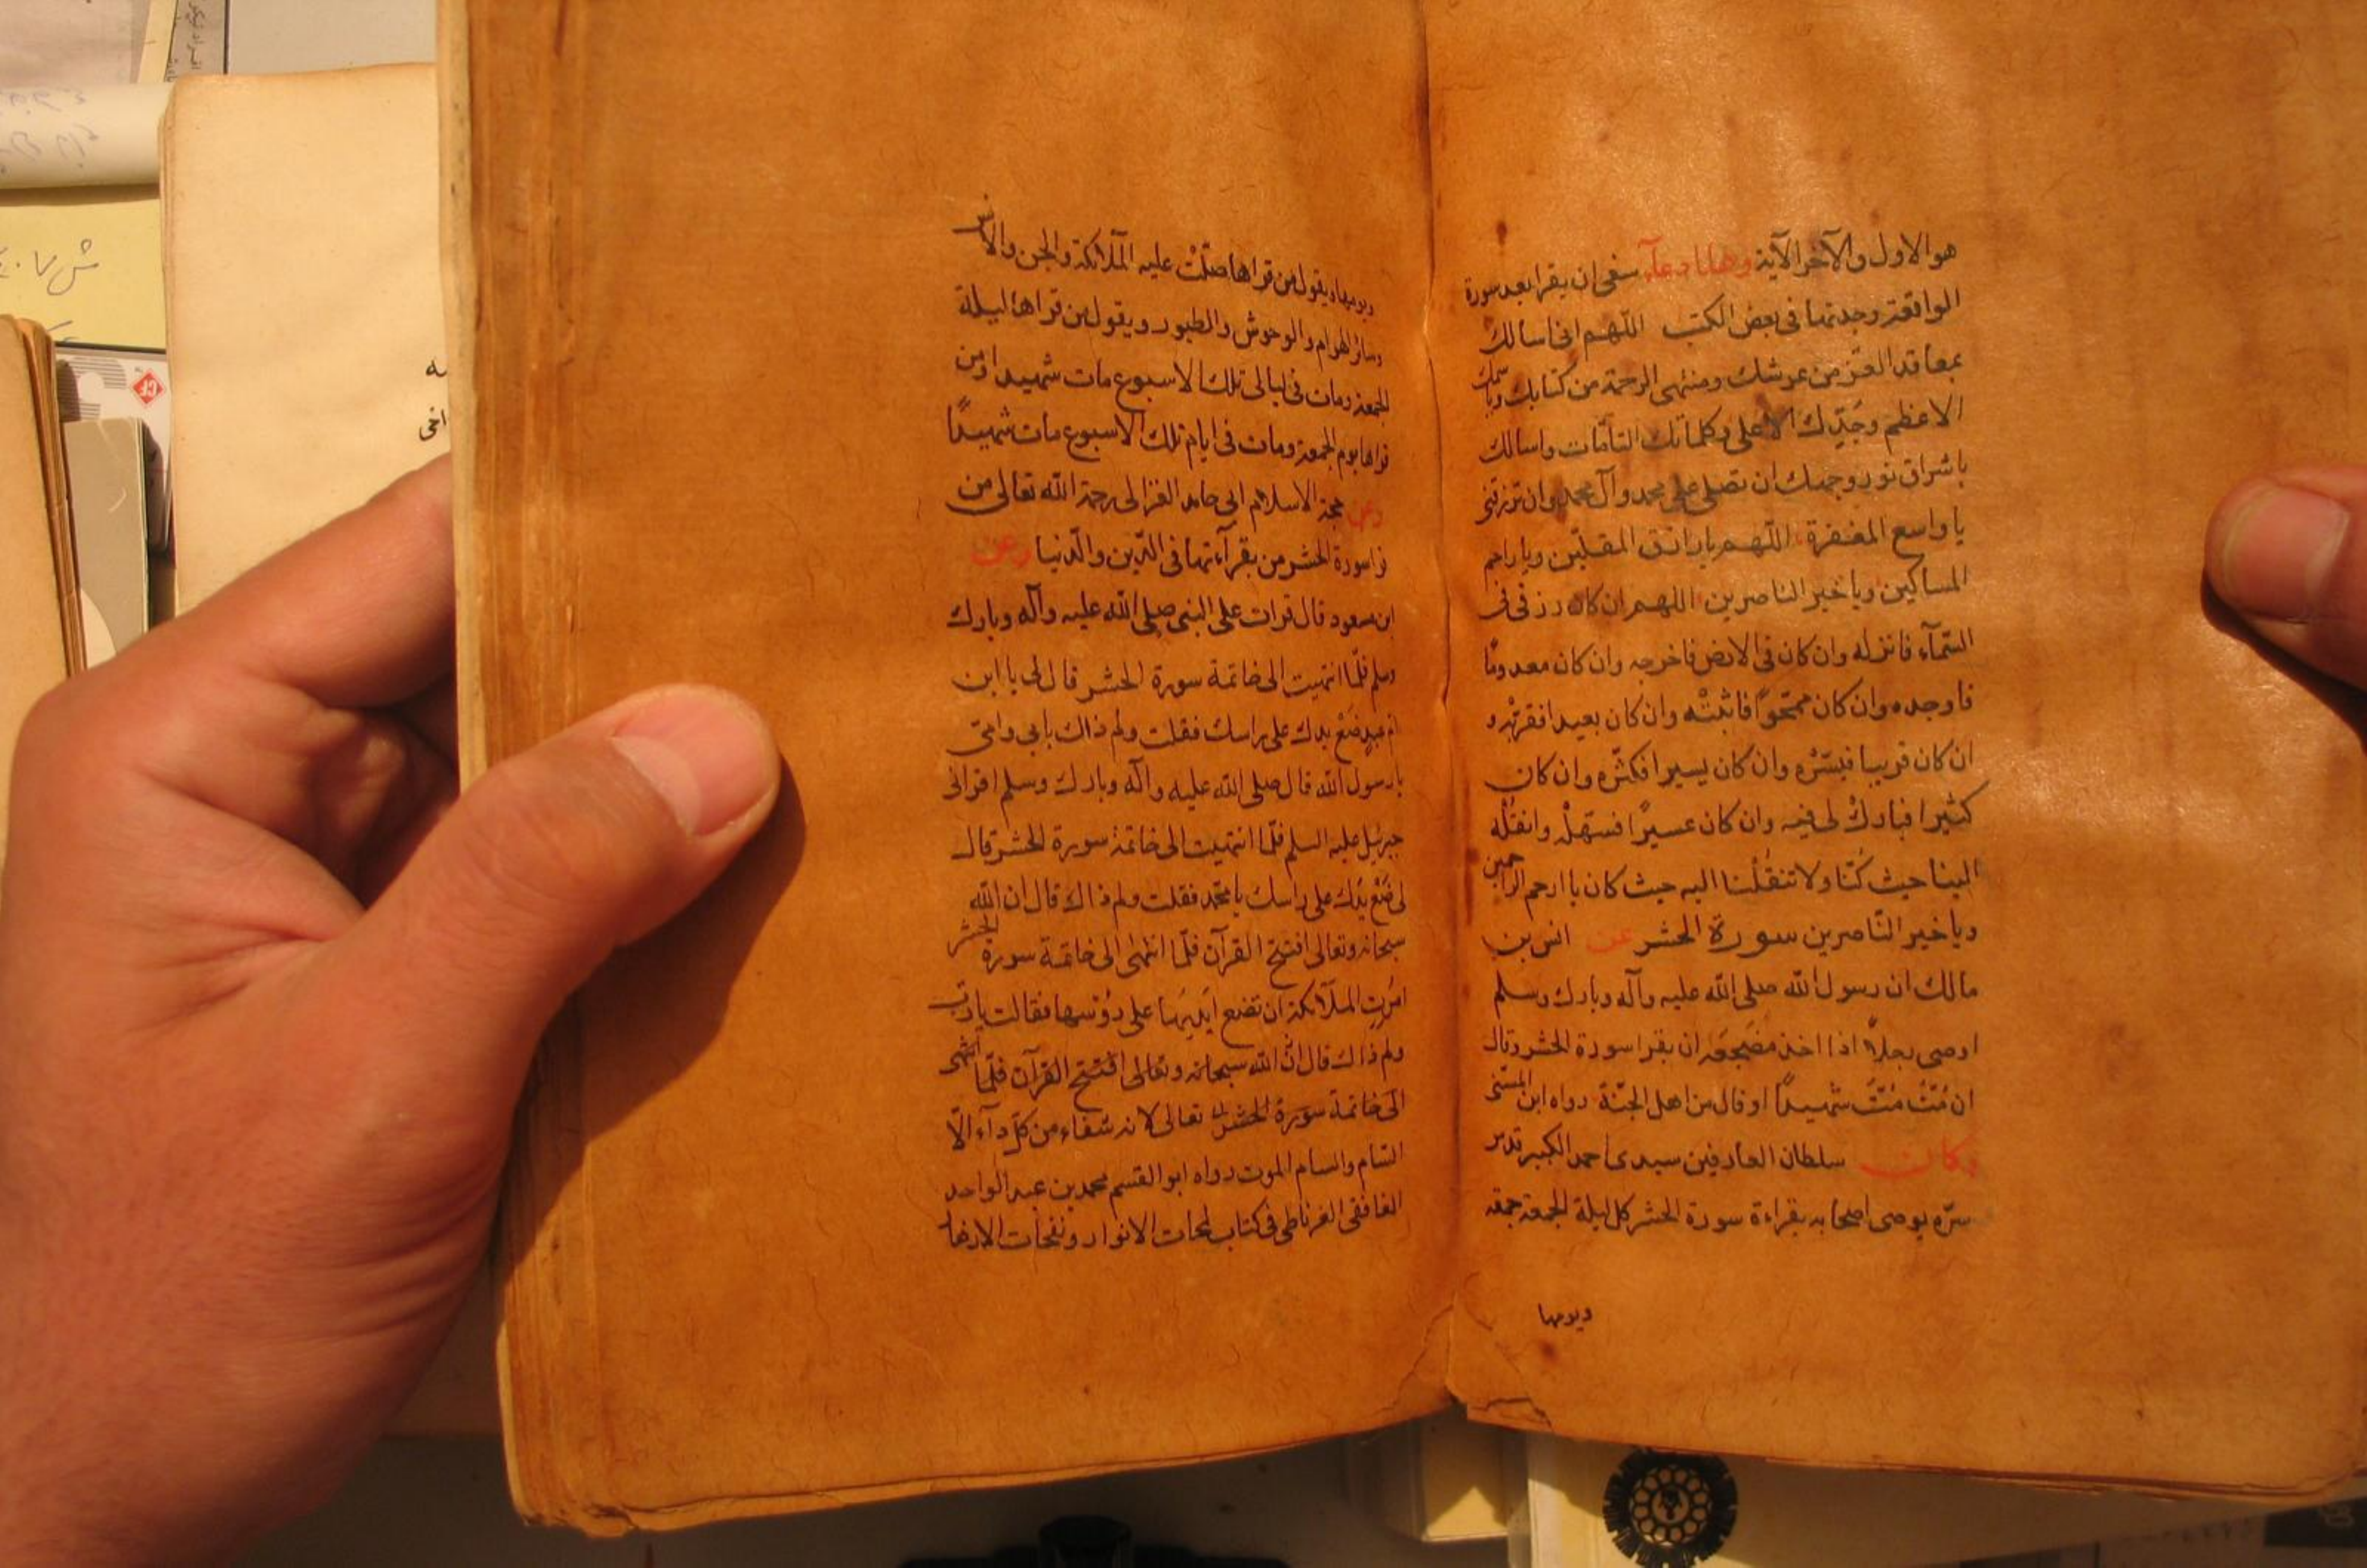 هو الاول والآخر الآية وهذا دعاء ينبغى ان يقرا بعد سورة
الواقعة وجدتها فى بعض الكتب اللهم انى اسالك
بمعاقد العز من عرشك ومنتهى الرحمة من كتابك وباسمك
الاعظم وجدّك الاعلى وكلماتك التامّات واسالك
باشراق نور وجهك ان تصلى على محمد وآل محمد وان ترزقنى
يا واسع المغفرة اللّهم يا رازق المقلّين ويا راحم
المساكين ويا خير الناصرين اللهم ان كان رزقى فى
السّمآء فانزله وان كان فى الارض فاخرجه وان كان معدومًا
فاوجده وان كان ممحوًّا فاثبتْه وان كان بعيدا فقرّبْه و
ان كان قريبا فيسّرْه وان كان يسيرا فكثّره وان كان
كثيرا فبارك لى فيه وان كان عسيرًا فسهّلْه وانقُلْه
الينا حيث كُنّا ولا تنقُلْنا اليه حيث كان يا ارحم الراحمين
ويا خير النّاصرين سورة الحشر عن انس بن
مالك ان رسول الله صلى الله عليه وآله وبارك وسلم
اوصى رجلاً اذا اخذ مضجعَه ان يقرا سورة الحشر وقال
ان مُتّ مُتّ شهيدًا او قال من اهل الجنّة رواه ابن السّنى
وكان سلطان العارفين سيدى احمد الكبير قدس
سرّه يوصى اصحابه بقراءة سورة الحشر كل ليلة الجمعة جمعة
ويومها
ويومها ويقول من قراها صلّتْ عليه الملآئكة والجن والانس
وسائر الهوام والوحوش والطيور ويقول من قراها ليلة
الجمعة ومات فى ليالى تلك الاسبوع مات شهيدا ومن
قراها يوم الجمعة ومات فى ايام تلك الاسبوع مات شهيدًا
وعن حجة الاسلام ابى حامد الغزالى رحمة الله تعالى من
قرا سورة الحشر من بقرآءتها فى الدّين والدّنيا وعن
ابن مسعود قال قرات على النبى صلى الله عليه وآله وبارك
وسلم فلمّا انتهيت الى خاتمة سورة الحشر قال لى يا ابن
ام عبدٍ ضَعْ يدك على راسك فقلت ولم ذاك بابى وامّى
يا رسول الله قال صلى الله عليه وآله وبارك وسلم اقرانى
جبرئيل عليه السلم فلمّا انتهيت الى خاتمة سورة الحشر قال
لى ضَعْ يدَك على راسك يا محمّد فقلت ولم ذاك قال ان الله
سبحانه وتعالى افتتح القرآن فلمّا انتهى الى خاتمة سورة الحشر
امرتِ الملآئكة ان تضع ايديَها على رؤسها فقالت يا ربّ
ولم ذاك قال انّ الله سبحانه وتعالى افتتح القرآن فلمّا انتهى
الى خاتمة سورة الحشر تعالى لانه شفاء من كلّ دآء الّا
السّام والسام الموت رواه ابو القسم محمد بن عبد الواحد
الغافقى الغرناطى فى كتاب لمحات الانوار ونفحات الازهار